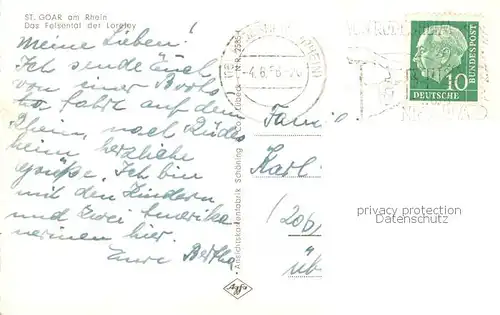 ST. GOAR am Rhein
Das Felsental der Loreley
Meine Lieben!
Ich sende Euch
von einer Boots
fahrt auf dem
Rhein, nach Rüdes
heim herzliche
Grüße. Ich bin
mit den Kindern
und zwei Amerika
nerinnen hier.
Eure Bertha
Ansichtskartenfabrik Schöning
4.6.56
10
DEUTSCHE
BUNDESPOST
Famil
Karl
(20b
privacy protection
Datenschutz